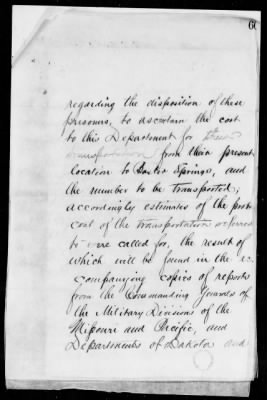 60
regarding the disposition of these
prisoners, to ascertain the cost
to this Department for their
transportation from their present
location to Castro Springs, and
the number to be transported;
accordingly estimates of the prob
cost of the transportation referred
to were called for, the result of
which will be found in the ac-
companying copies of reports
from the Commanding Generals of
the Military Divisions of the
Missouri and Pacific, and
Departments of Dakota and